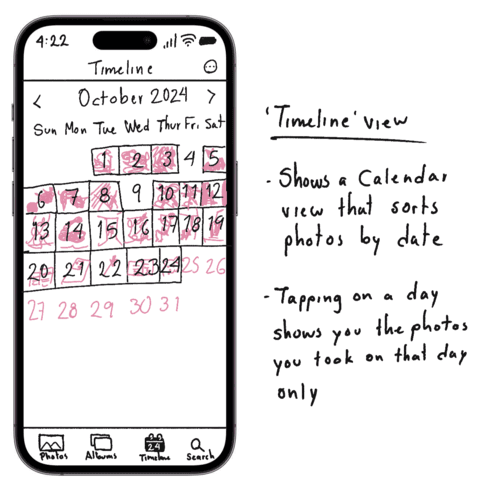 4:22
Timeline
< October 2024 >
Sun Mon Tue Wed Thur Fri Sat
1 2 3 4 5
6 7 8 9 10 11 12
13 14 15 16 17 18 19
20 21 22 23 24 25 26
27 28 29 30 31
Photos Albums Timeline Search
24
'Timeline' view
- Shows a Calendar
view that sorts
photos by date
- Tapping on a day
shows you the photos
you took on that day
only